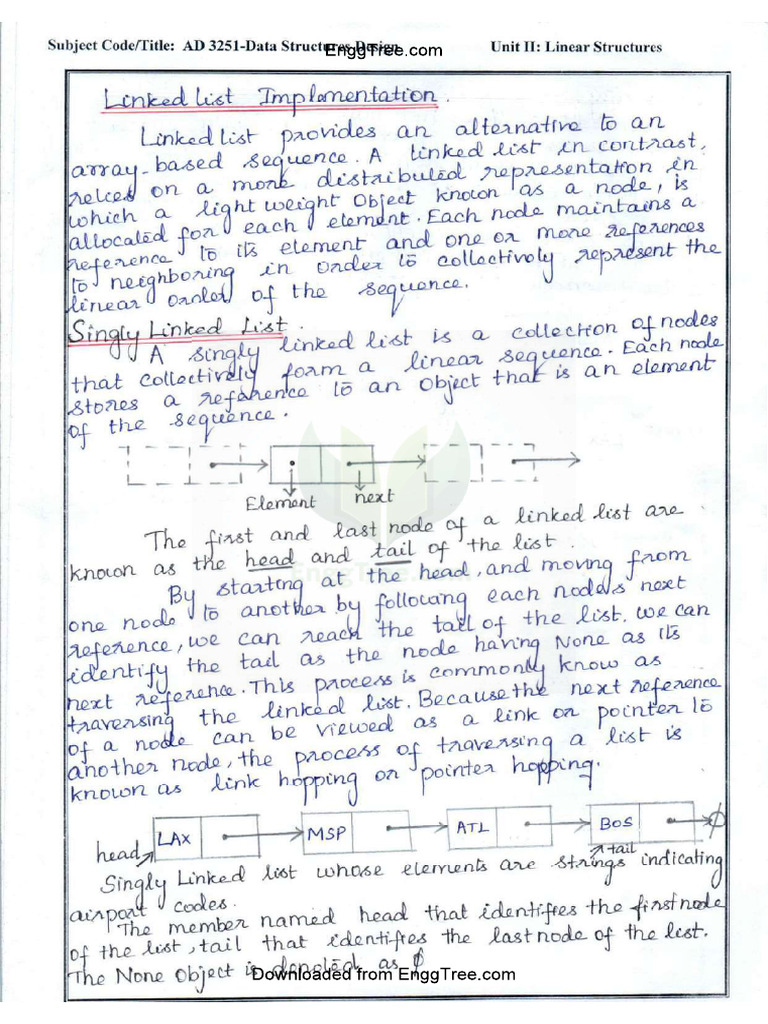 Subject Code/Title: AD 3251-Data Structures Design Unit II: Linear Structures
EnggTree.com
Linked list Implementation.
Linked list provides an alternative to an
array-based sequence. A linked list in contrast,
relies on a more distributed representation in
which a light weight Object known as a node, is
allocated for each element. Each node maintains a
reference to its element and one or more references
to neighboring in order to collectively represent the
linear order of the sequence.
Singly Linked List.
A singly linked list is a collection of nodes
that collectively form a linear sequence. Each node
stores a reference to an Object that is an element
of the sequence.
Element next
The first and last node of a linked list are
known as the head and tail of the list.
EnggTree.com
By starting at the head, and moving from
one node to another by following each node's next
reference, we can reach the tail of the list. we can
identify the tail as the node having None as its
next reference. This process is commonly know as
traversing the linked list. Because the next reference
of a node can be viewed as a link or pointer to
another node, the process of traversing a list is
known as link hopping or pointer hopping.
LAX MSP ATL BOS ∅
head tail
Singly Linked list whose elements are strings indicating
airport codes.
The member named head that identifies the first node
of the list, tail that identifies the last node of the list.
The None Object is denoted as ∅
Downloaded from EnggTree.com